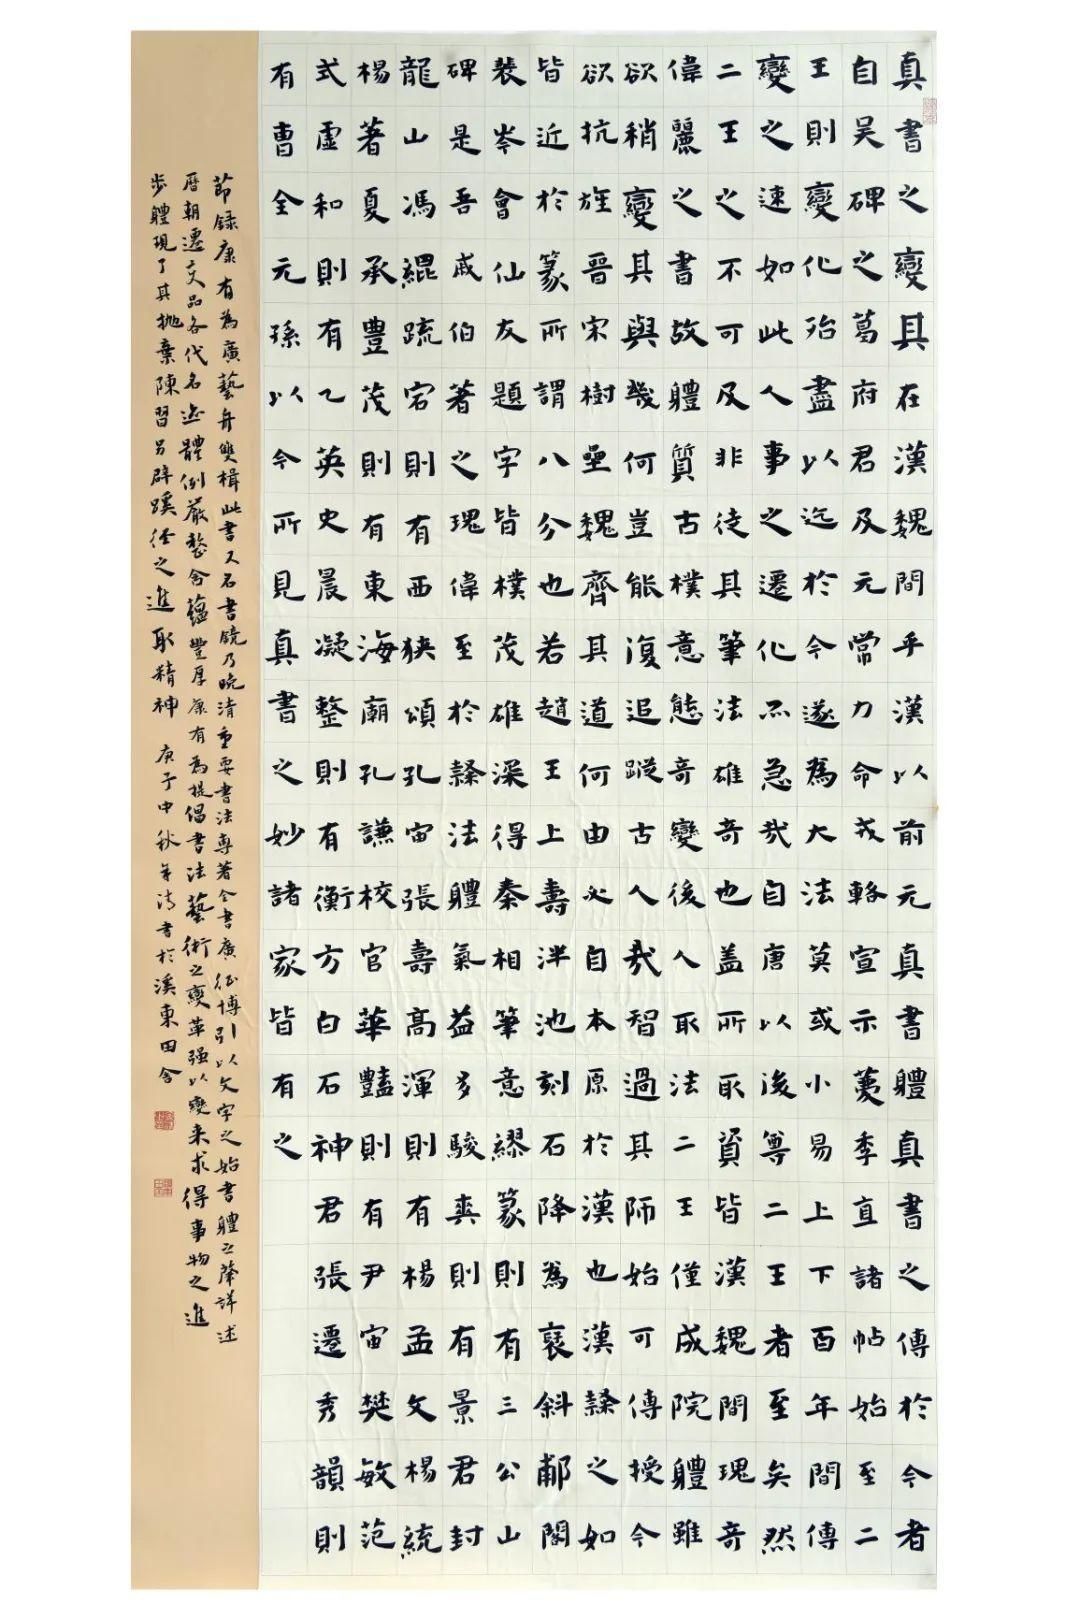 真書之變其在漢魏間乎漢以前元真書體真書之傳於今者
自吴碑之葛府君及元常力命戎輅宣示薦季直諸帖始至二
王則變化殆盡以迄於今遂為大法莫或小易上下百年間傳
變之速如此人事之遷化亦急哉自唐以後尊二王者至矣然
二王之不可及非徒其筆法雄奇也盖所取資皆漢魏間瑰奇
偉麗之書故體質古樸意態奇變後人取法二王僅成院體雖
欲稍變其與幾何豈能復追蹤古人哉智過其師始可傳授今
欲抗旌晋宋樹壘魏齊其道何由必自本原於漢也漢隸之如
皆近於篆所謂八分也若趙王上壽泮池刻石降為裒斜郙閣
裴岑會仙友題字皆樸茂雄深得秦相筆意繆篆則有三公山
碑是吾戚伯著之瑰偉至於隸法體氣益多駿爽則有景君封
龍山馮緄疏宕則有西狹頌孔宙張壽高渾則有楊孟文楊統
楊著夏承豐茂則有東海廟孔謙校官華豔則有尹宙樊敏范
式虛和則有乙英史晨凝整則有衡方白石神君張遷秀韻則
有曹全元孫以今所見真書之妙諸家皆有之
節録康有為廣藝舟雙楫此書又名書鏡乃晚清重要書法專著全書廣征博引以文字之始書體之肇詳述
曆朝遷變品各代名迹體例嚴整含蘊豐厚康有為提倡書法藝術之變革強以變来求得事物之進
步體現了其拋棄陳習另辟蹊徑之進取精神 庚子中秋年清書於溪東田舍